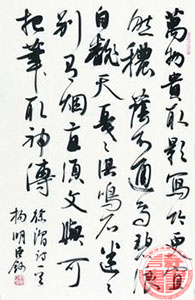 萬物貴取影寫竹更宜
然穠蔭不通鳥碧浪
自翻天戛〻俱鳴石迷〻
別有烟直須文與可
把筆取神傳
徐渭詩一首
楊明臣錄